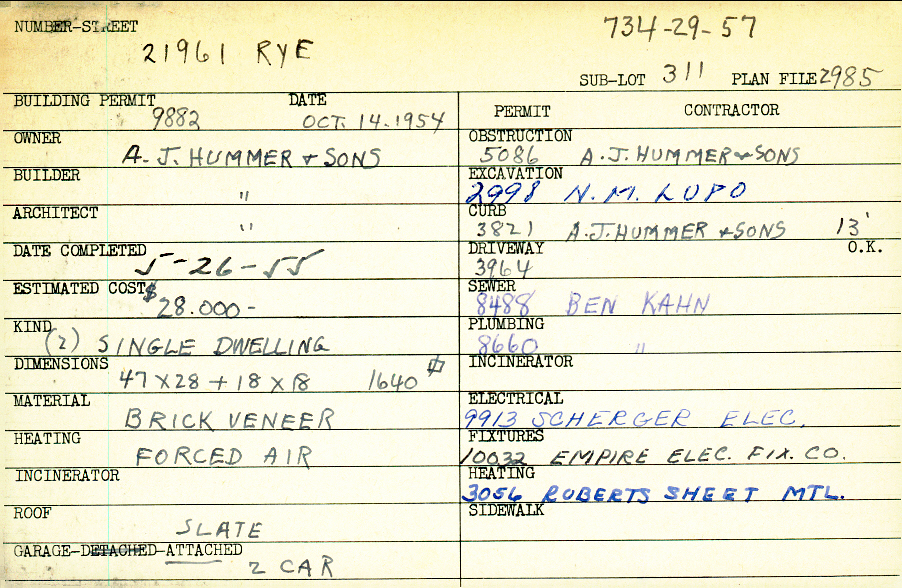 NUMBER-STREET
734-29-57
21961 RYE
SUB-LOT 311 PLAN FILE 2985
BUILDING PERMIT DATE
9882 OCT. 14. 1954
OWNER
A. J. HUMMER & SONS
BUILDER
"
ARCHITECT
"
DATE COMPLETED
5-26-55
ESTIMATED COST $
28.000-
KIND
(2) SINGLE DWELLING
DIMENSIONS
47 X 28 + 18 X 18 1640
MATERIAL
BRICK VENEER
HEATING
FORCED AIR
INCINERATOR
ROOF
SLATE
GARAGE-DETACHED-ATTACHED
2 CAR
PERMIT CONTRACTOR
OBSTRUCTION
5086 A. J. HUMMER & SONS
EXCAVATION
2998 N. M. LUPO
CURB
3821 A. J. HUMMER & SONS 13'
DRIVEWAY O.K.
3964
SEWER
8488 BEN KAHN
PLUMBING
8660 "
INCINERATOR
ELECTRICAL
9913 SCHERGER ELEC.
FIXTURES
10032 EMPIRE ELEC. FIX. CO.
HEATING
3056 ROBERTS SHEET MTL.
SIDEWALK